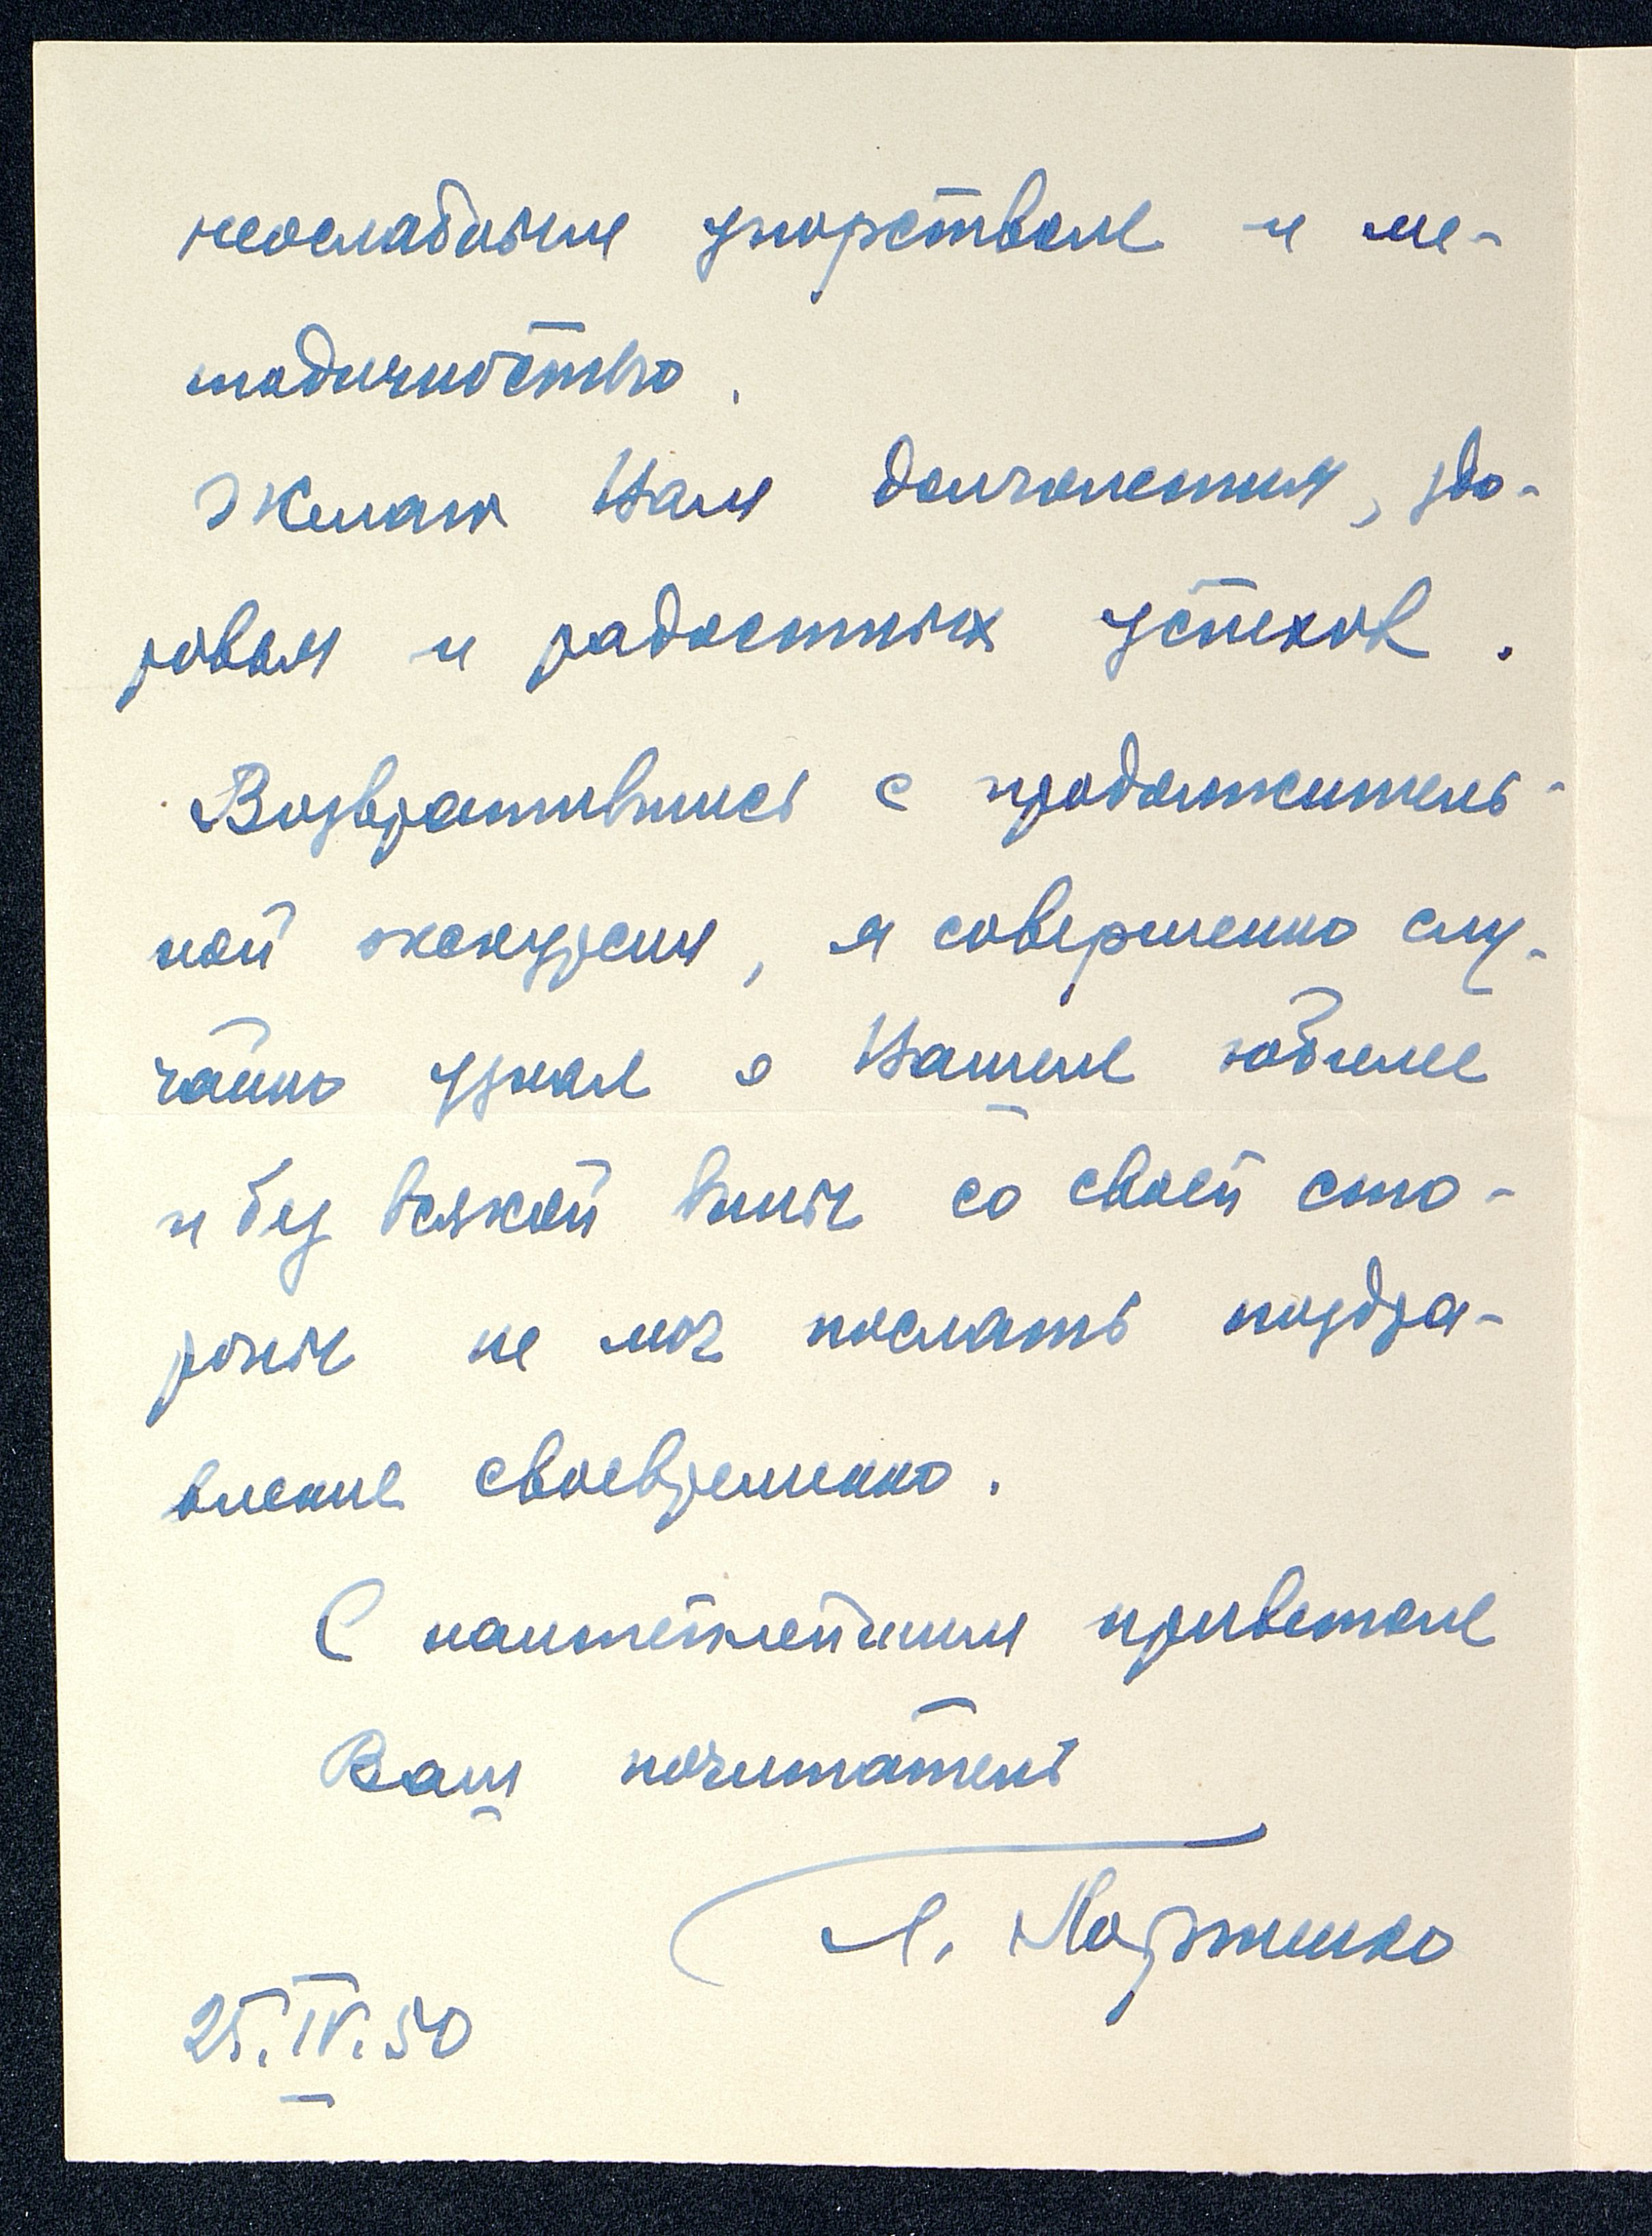 неослабным упорством и ме-
тодичностью.
Желаю Вам долголетия, здо-
ровья и радостных успехов.
Возвратившись с продолжитель-
ной экскурсии, я совершенно слу-
чайно узнал о Вашем юбилее
и без всякой вины со своей сто-
роны не мог послать поздра-
вление своевременно.
С наитеплейшим приветом
Ваш почитатель
25.IV.50